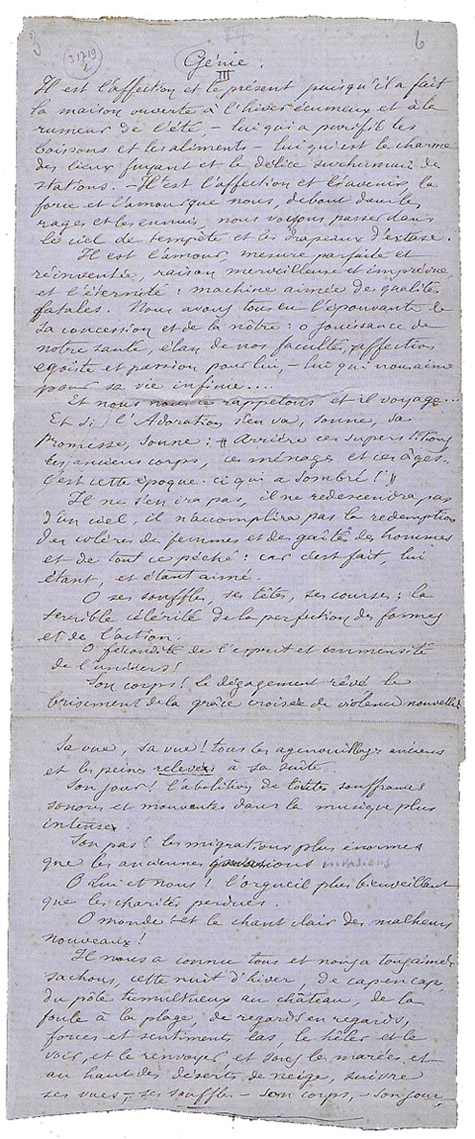 3
3719
2
6
Génie.
III
Il est l'affection et le présent puisqu'il a fait
la maison ouverte à l'hiver écumeux et à la
rumeur de l'été – lui qui a purifié les
boissons et les aliments – lui qui est le charme
des lieux fuyant et le délice surhumain de
stations. – Il est l'affection et l'avenir, la
force et l'amour que nous, debout dans les
rages et les ennuis, nous voyons passer dans
le ciel de tempête et les drapeaux d'extase.
Il est l'amour, mesure parfaite et
réinventée, raison merveilleuse et imprévue,
et l'éternité : machine aimée des qualités
fatales. Nous avons tous eu l'épouvante de
sa concession et de la nôtre : o jouissance de
notre santé, élan de nos facultés, affection
egoïste et passion pour lui, – lui qui nous aime
pour sa vie infinie....
Et nous nous le rappelons et il voyage...
Et si l'Adoration s'en va, sonne, sa
Promesse, sonne : « Arrière ces superstitions,
ces anciens corps, ces ménages et ces âges.
C'est cette époque-ci qui a sombré ! »
Il ne s'en ira pas, il ne redescendra pas
d'un ciel, il n'accomplira pas la rédemption
des colères de femmes et des gaîtés des hommes
et de tout ce péché : car c'est fait, lui
étant, et étant aimé.
O ses souffles, ses têtes, ses courses ; la
terrible célérité de la perfection des formes
et de l'action.
O fécondité de l'esprit et immensité
de l'univers !
Son corps ! Le dégagement rêvé, le
brisement de la grâce croisée de violence nouvelle !
Sa vue, sa vue ! tous les agenouillages anciens
et les peines relevés à sa suite.
Son jour ! l'abolition de toutes souffrances
sonores et mouvantes dans la musique plus
intense.
Son pas ! les migrations plus énormes
que les anciennes invasions
O Lui et nous ! l'orgueil plus bienveillant
que les charités perdues.
O monde – et le chant clair des malheurs
nouveaux !
Il nous a connu tous et nous a tous aimés,
sachons, cette nuit d'hiver, de cap en cap,
du pôle tumultueux au château, de la
foule à la plage, de regards en regards,
forces et sentiments las, le héler et le
voir, et le renvoyer, et sous les marées et
au haut des déserts de neige, suivre
ses vues, – ses souffles – son corps, – son jour.